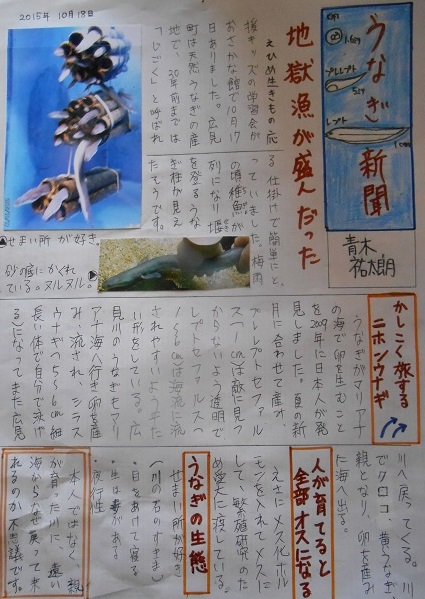 2015年 10月18日
うなぎ新聞
卵
プレレプト
レプト
青木
祐太朗
地獄漁が盛んだった
えひめ生きもの応
援キッズの学習会が
おさかな館で10月17
日ありました。広見
町は天然うなぎの産
地で、30年前までは
「じごく」と呼ばれ
る仕掛けで簡単にと
っていました。梅雨
の頃稚魚が
列になり堰
を登るうな
ぎ柱が見え
たそうです。
せまい所が好き。
砂の底にかくれ
ている。ヌルヌル。
かしこく旅する
ニホンウナギ
うなぎがマリアナ
の海で卵を生むこと
を2009年に日本人が発
見しました。夏の新
月に合わせて産み
プレレプトセファル
ス〜1cmは敵に見つ
からないよう透明で
レプトセファルス〜
1〜6cmは海流に流
されやすいよう平た
い形をしている。広
見川のうなぎもマリ
アナ海へ行き卵を産
み、流され、シラス
ウナギへ5〜6cm細
長い体で自分で泳げ
る)になってまた広見
川へ戻ってくる。川
でクロコ、黄うなぎ、
親となり、卵を産み
に海へ出る。
人が育てると
全部オスになる
えさにメス化ホル
モンを入れてメスに
して、繁殖研究のた
め愛大に渡している。
うなぎの生態
せまい所が好き
(川の石のすきま)
・目をあけて寝る
・生は毒がある
・夜行性
本人ではなく、親
が育った川に、遠い
海からなぜ戻って来
れるのか不思議です。